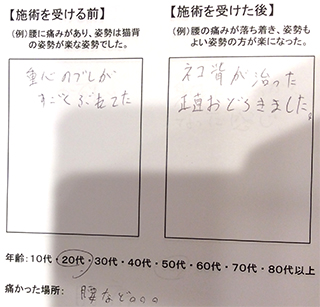 【施術を受ける前】
(例)腰に痛みがあり、姿勢は猫背
の姿勢が楽な姿勢でした。
重心のブレが
すごくぶれてた
【施術を受けた後】
(例)腰の痛みが落ち着き、姿勢も
よい姿勢の方が楽になった。
ネコ背が治った
正直おどろきました。
年齢:10代・20代・30代・40代・50代・60代・70代・80代以上
痛かった場所: 腰など。。。